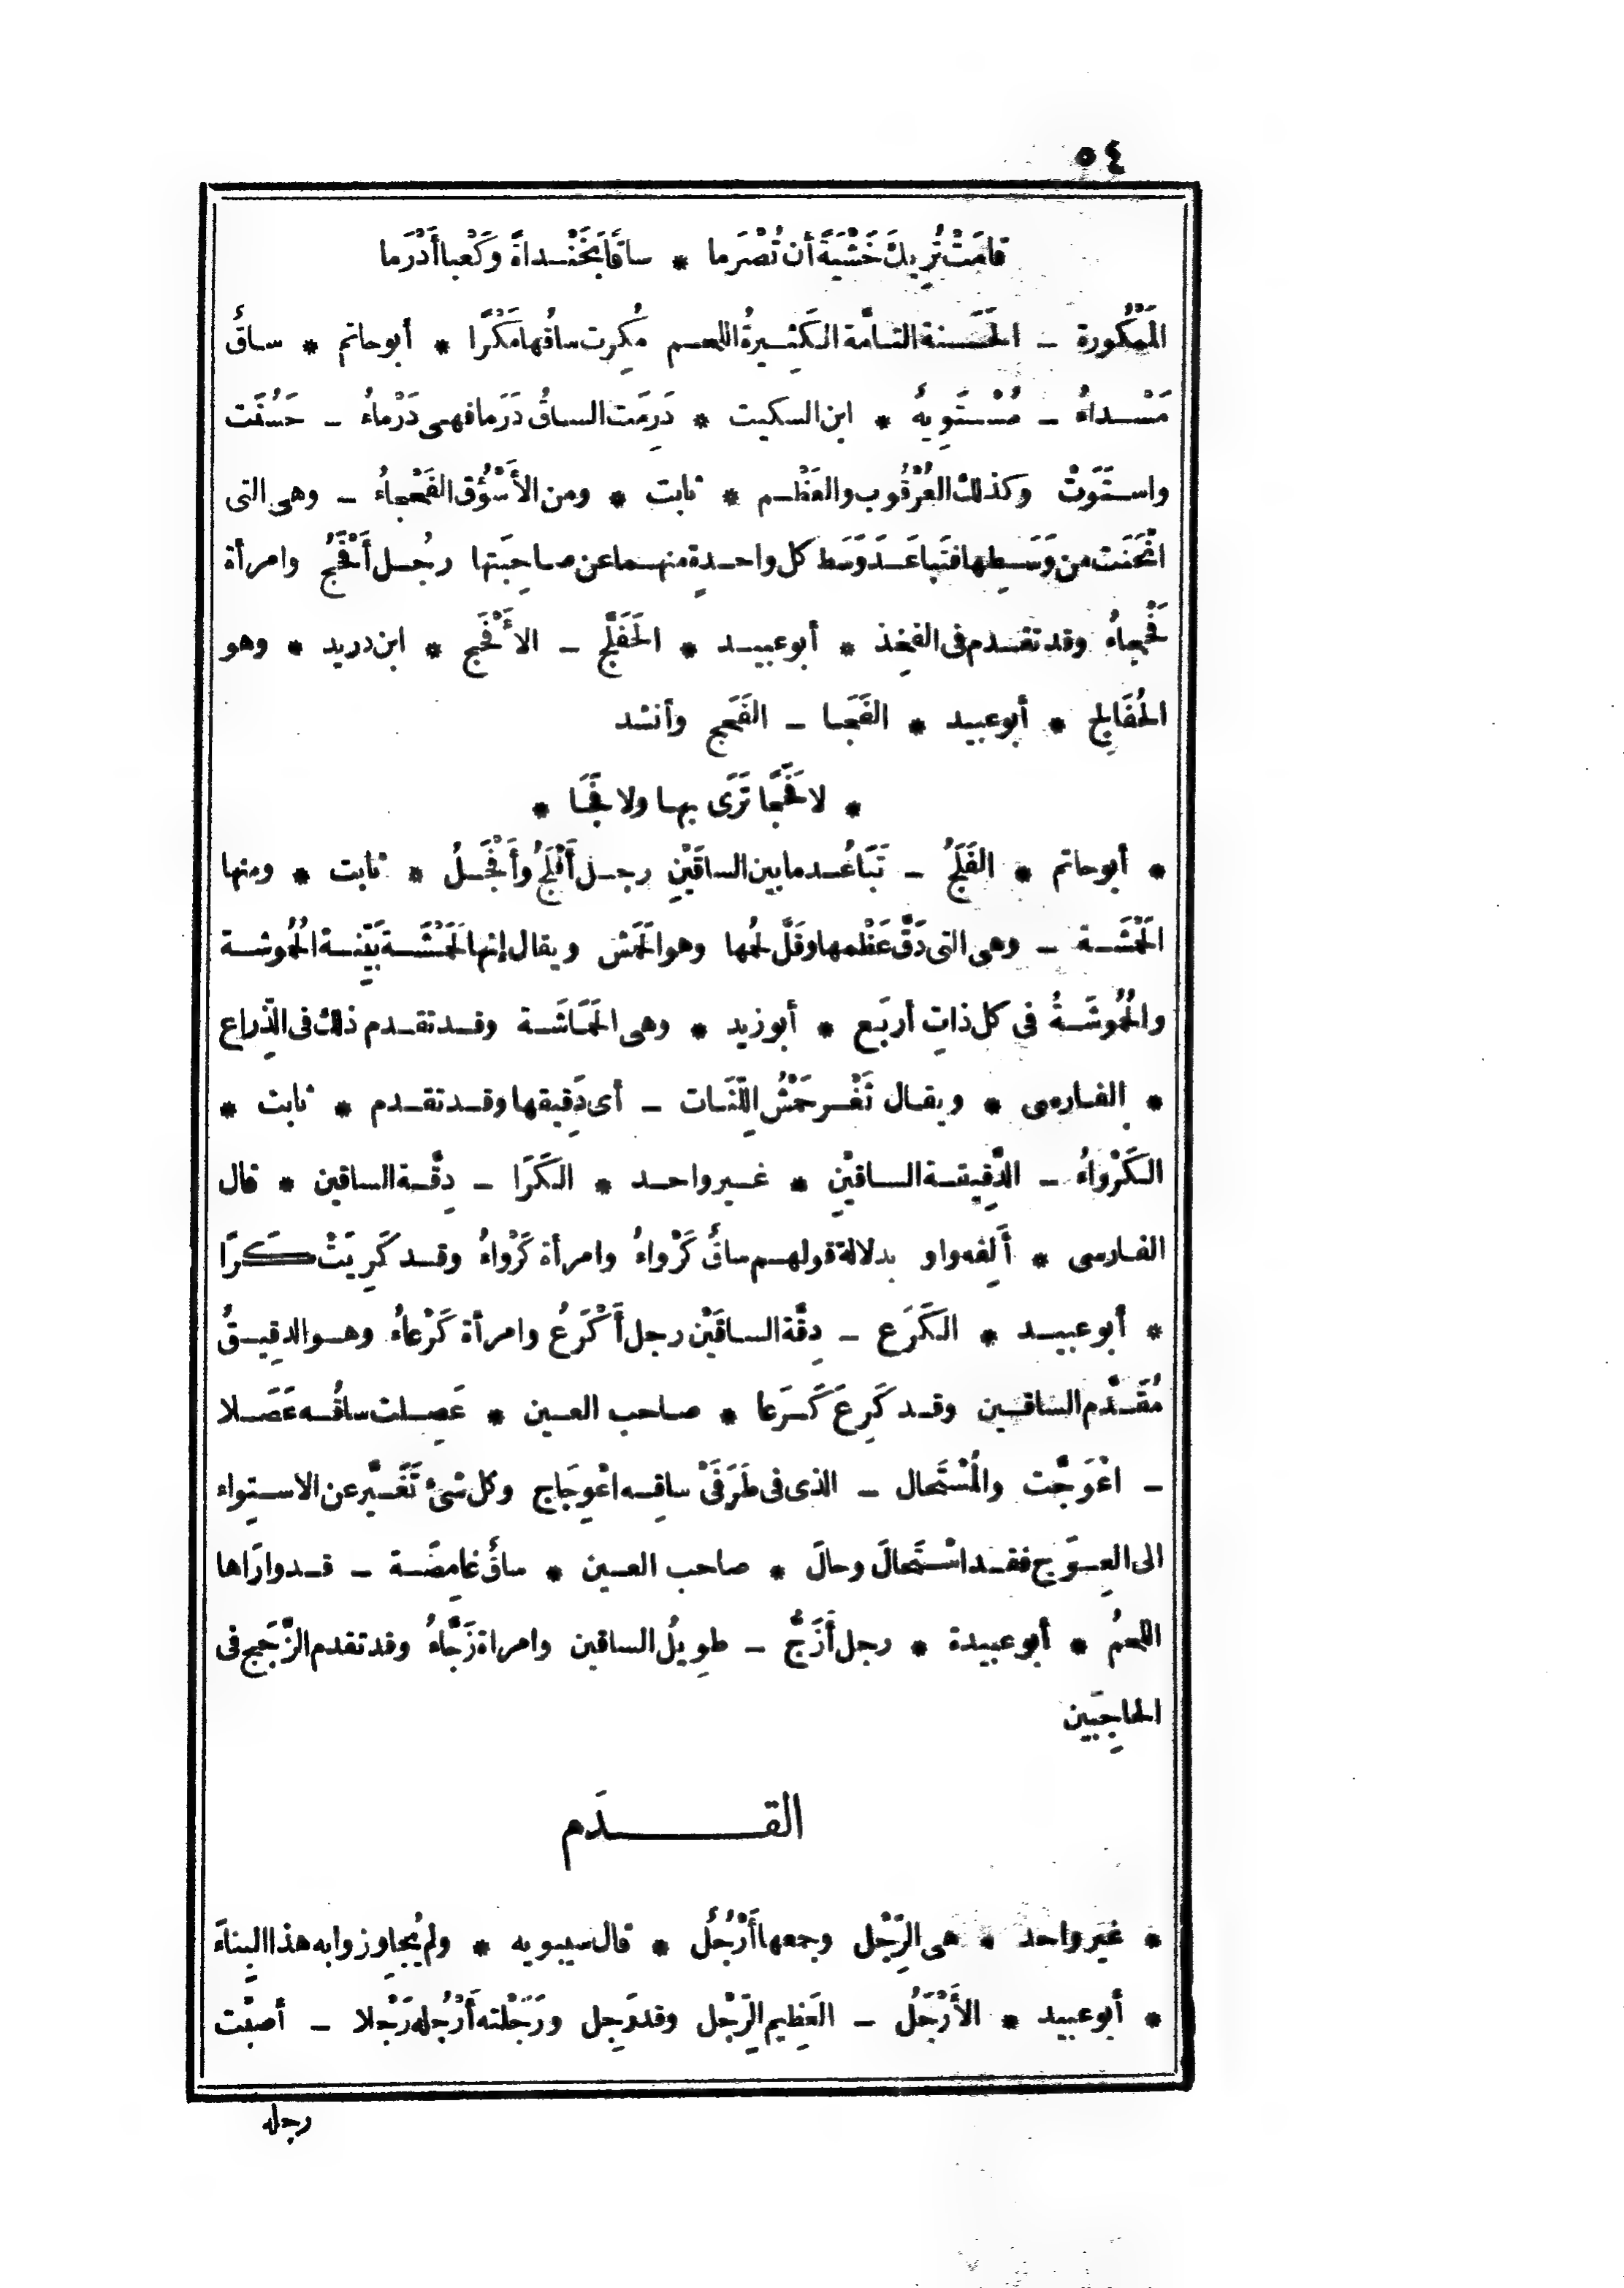 ٥٤
قامَتْ تُرِيكَ خَشْيَةً أن تُصْرَما * ساقًا بَخَنْداةً وكَعْبا أَدْرَما
المَمْكُورة - الحَسَنة التامَّة الكَثِيرةُ اللحم مُكِرت ساقُها مَكْرًا * أبو حاتم * ساقٌ
مَسْداءُ - مُسْتَوِيةٌ * ابن السكيت * دَرِمَت الساقُ دَرَما فهى دَرْماءُ - حَسُنَت
واستَوَتْ وكذلك العُرْقُوب والعَظْم * ثابت * ومن الأَسْؤُق الفَحْجاءُ - وهى التى
انْحَنَت من وَسَطِها فتَباعَدَ وَسَط كل واحدةٍ منهما عن صاحِبَتها رجُل أَفْحَجُ وامرأة
فَحْجاءُ وقد تقدم فى الفخِذ * أبو عبيد * الحَفَلَّج - الأَفْحَج * ابن دريد * وهو
الحُفَالِج * أبو عبيد * الفَجَا - الفَحَج وأنشد
* لا فَحَجًا تَرَى بها ولا فَجَا *
* أبو حاتم * الفَلَجُ - تَبَاعُد ما بين الساقَيْنِ رجل أَفْلَجُ وأَفْجَلُ * ثابت * ومنها
الحَمْشَة - وهى التى دَقَّ عَظْمها وقَلَّ لحمُها وهو الحَمَش ويقال إنها لحَمْشَة بَيِّنة الحُمُوشة
والحُمُوشَةُ فى كل ذاتِ أربَع * أبو زيد * وهى الحَمَاشَة وقد تقدم ذلك فى الذِّراع
* الفارسى * ويقال ثَغْر حَمْشُ اللِّثَات - أى دَقِيقها وقد تقدم * ثابت *
الكَرْواءُ - الدَّقِيقة الساقَيْنِ * غير واحد * الكَرَا - دِقَّة الساقين * قال
الفارسى * أَلِفه واو بدلالة قولهم ساقٌ كَرْواءُ وامرأة كَرْواءُ وقد كَرِيَتْ كَرًا
* أبو عبيد * الكَرَع - دِقَّة الساقَيْن رجل أَكْرَعُ وامرأة كَرْعاءُ وهو الدقِيقُ
مُقَدَّم الساقين وقد كَرِعَ كَرَعا * صاحب العين * عَصِلت ساقُه عَصَلا
- اعْوَجَّت والمُسْتَحال - الذى فى طَرَفَىْ ساقِه اعْوِجَاج وكل شئ تَغَيَّر عن الاستِواء
الى العِوَج فقد اسْتَحالَ وحالَ * صاحب العين * ساقٌ غامِضَة - قد وارَاها
اللحمُ * أبو عبيدة * رجل أَزَجُّ - طوِيلُ الساقين وامراة زَجَّاءُ وقد تقدم الزَّجَج فى
الحاجِبَين
القدَم
* غَير واحد * هى الرِّجْل وجمعها أَرْجُلٌ * قال سيبويه * ولم يُجاوِزوا به هذا البِناءَ
* أبو عبيد * الأَرْجَلُ - العَظِيم الرِّجْل وقد رَجِل ورَجَلْته أَرْجُله رَجْلا - أصبْت
رجله